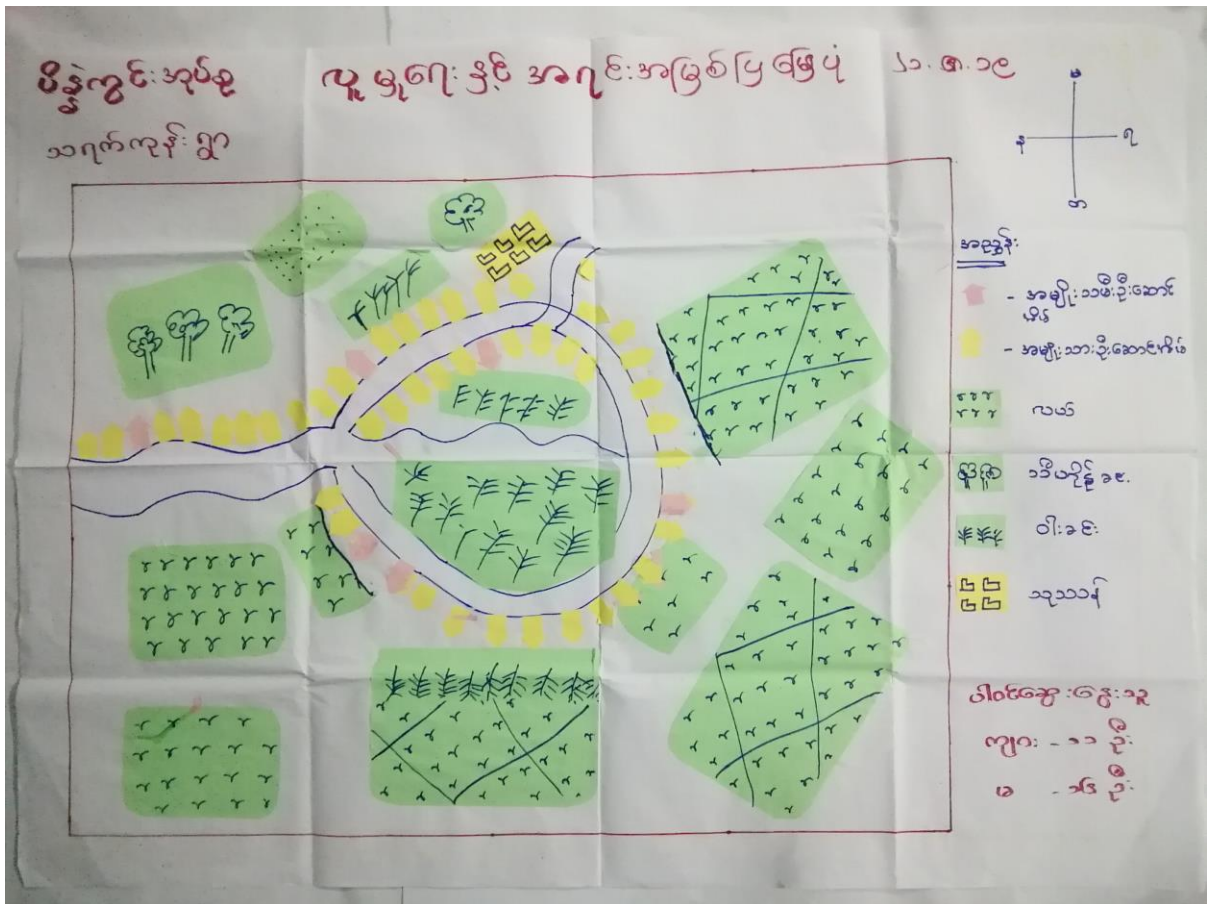 ပိန္နဲကွင်းအုပ်စု လူမှုရေးနှင့် အရင်းအမြစ်ပြမြေပုံ ၂၁.၈.၁၉
သရက်ကုန်းရွာ
မ
န ရ
တ
အညွှန်း
- အမျိုးသမီးဦးဆောင်အိမ်
- အမျိုးသားဦးဆောင်အိမ်
လယ်
ဝါးခင်း
သုသာန်
ပါဝင်ဆွေးနွေးသူ
ကျား - ၁၁ ဦး
မ